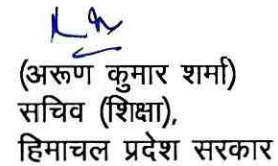 (अरूण कुमार शर्मा)
सचिव (शिक्षा),
हिमाचल प्रदेश सरकार